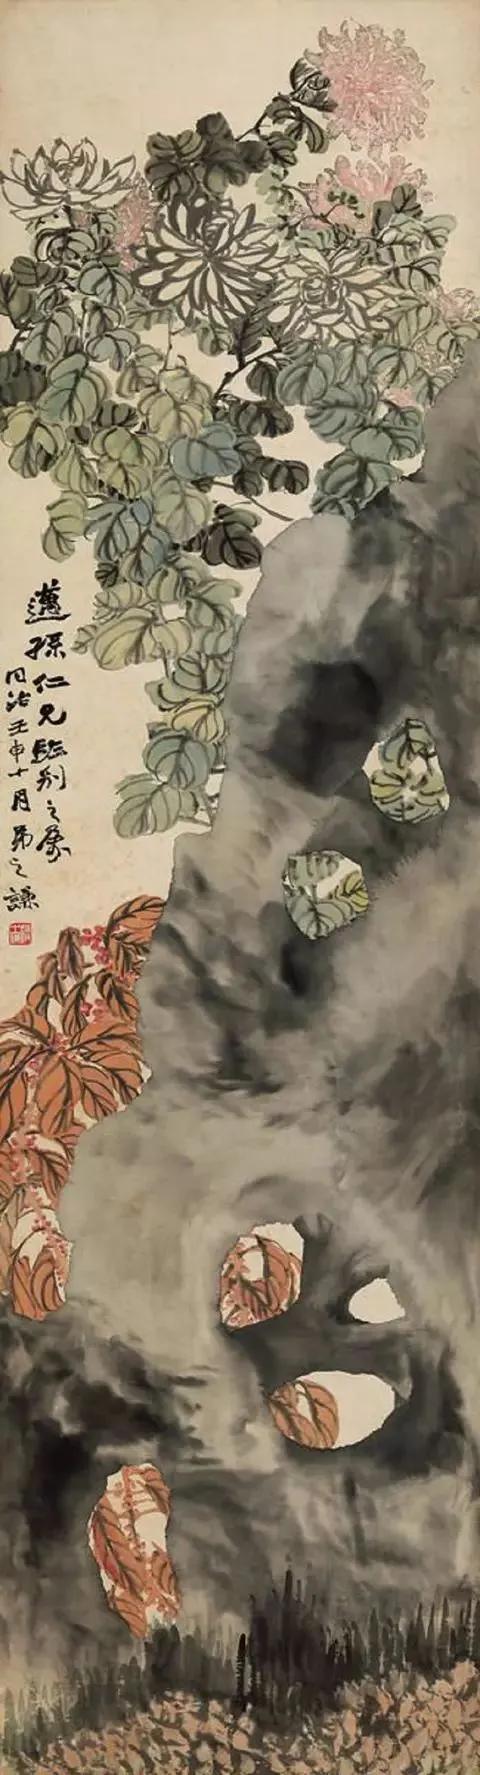 邁孫仁兄臨别之屬
同治壬申十月弟之謙